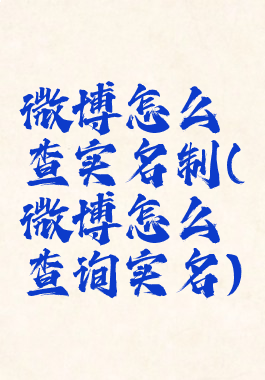 微博怎么
查实名制(
微博怎么
查询实名)